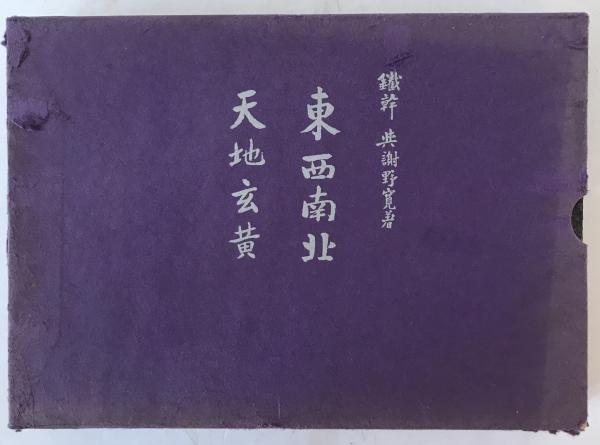 鐵幹 與謝野寛著
東西南北
天地玄黄